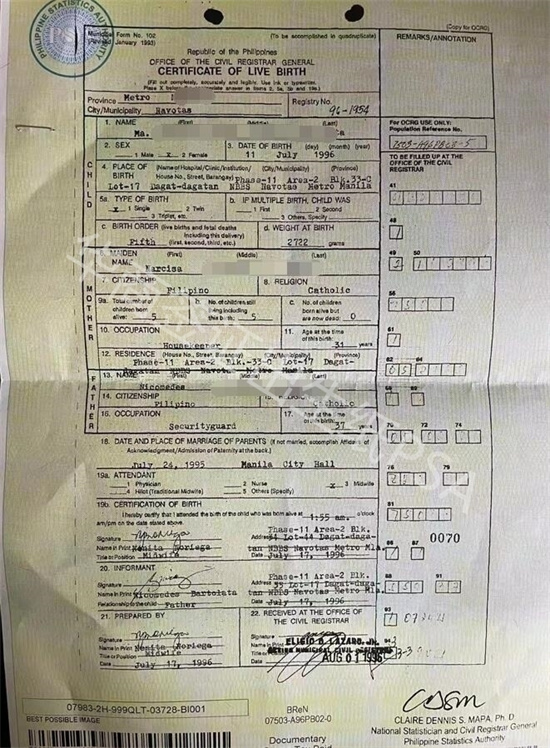 PHILIPPINE STATISTICS AUTHORITY
Municipal Form No. 102
(To be accomplished in quadruplicate)
(Copy for OCRG)
(Revised January 1993)
Republic of the Philippines
OFFICE OF THE CIVIL REGISTRAR GENERAL
CERTIFICATE OF LIVE BIRTH
REMARKS/ANNOTATION
(Fill out completely, accurately and legibly. Use ink or typewriter.
Province Metro
City/Municipality Navotas
Registry No. 96-1954
1. NAME (First) (Middle) (Last)
Ma.
FOR OCRG USE ONLY:
Population Reference No.
2. SEX
1 Male x 2 Female
3. DATE OF BIRTH (day) (month) (year)
11 July 1996
TO BE FILLED UP AT THE OFFICE OF THE CIVIL REGISTRAR
CHILD
4. PLACE OF BIRTH (Name of Hospital/Clinic/Institution/ House No., Street, Barangay) (City/Municipality) (Province)
Phase-11 Area-2 Blk.33-C
Lot-17 Dagat-dagatan NBBS Navotas Metro Manila
5a. TYPE OF BIRTH
x 1 Single 2 Twin
3 Triplet, etc.
b. IF MULTIPLE BIRTH, CHILD WAS
1 First 2 Second
3 Others, Specify
c. BIRTH ORDER (live births and fetal deaths including this delivery)
Fifth (first, second, third, etc.)
d. WEIGHT AT BIRTH
2722 grams
MOTHER
6. MAIDEN NAME (First) (Middle) (Last)
Narcisa
7. CITIZENSHIP
Filipino
8. RELIGION
Catholic
9a. Total number of children born alive: 5
b. No. of children still living including this birth: 5
c. No. of children born alive but are now dead: 0
10. OCCUPATION
Housekeeper
11. Age at the time of this birth: 31 years
12. RESIDENCE (House No., Street, Barangay) (City/Municipality) (Province)
Phase-11 Area-2 Blk.-33-C Lot-17 Dagat-
dagatan NBBS Navotas Metro Manila
FATHER
13. NAME (First) (Middle) (Last)
Nicomedes
14. CITIZENSHIP
Filipino
15. RELIGION
Catholic
16. OCCUPATION
Securityguard
17. Age at the time of this birth: 37 years
18. DATE AND PLACE OF MARRIAGE OF PARENTS (If not married, accomplish Affidavit of Acknowledgment/Admission of Paternity at the back.)
July 24, 1995 Manila City Hall
19a. ATTENDANT
1 Physician 2 Nurse x 3 Midwife
4 Hilot (Traditional Midwife) 5 Others (Specify)
19b. CERTIFICATION OF BIRTH
I hereby certify that I attended the birth of the child who was born alive at 1:55 am. o'clock
am/pm on the date stated above.
Signature
Name in Print Nenita Noriega
Title or Position Midwife
Phase-11 Area-2 Blk.
Address 34 Lot-44 Dagat-daga
tan NBBS Navotas Metro Mla.
Date July 17, 1996
0070
20. INFORMANT
Signature
Name in Print Nicomedes Bartolata
Relationship to the child Father
Phase-11 Area-2 Blk.
Address 33 Lot-17 Dagat-daga
tan NBBS Navotas Metro Mla.
Date July 17, 1996
21. PREPARED BY
Signature
Name in Print Nenita Noriega
Title or Position Midwife
Date July 17, 1996
22. RECEIVED AT THE OFFICE OF THE CIVIL REGISTRAR
Signature
Name in Print ELIGIO D. LAZARO, Jr.
Title or Position
Date AUG 01 1996
07983-2H-999QLT-03728-BI001
BEST POSSIBLE IMAGE
BReN
07503-A96PB02-0
Documentary
CLAIRE DENNIS S. MAPA, Ph. D.
National Statistician and Civil Registrar General
Philippine Statistics Authority